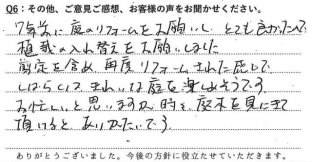 Q6：その他、ご意見ご感想、お客様の声をお聞かせください。
7年前に庭のリフォームをお願いし とても良かったので
植栽の入れ替えをお願いしました
剪定を含め、再度リフォームされた感じで
しばらくは、きれいな庭を楽しめそうです
お忙しいと思いますが、時々庭木を見にきて
頂けると ありがたいです。
ありがとうございました。今後の方針に役立たせていただきます。